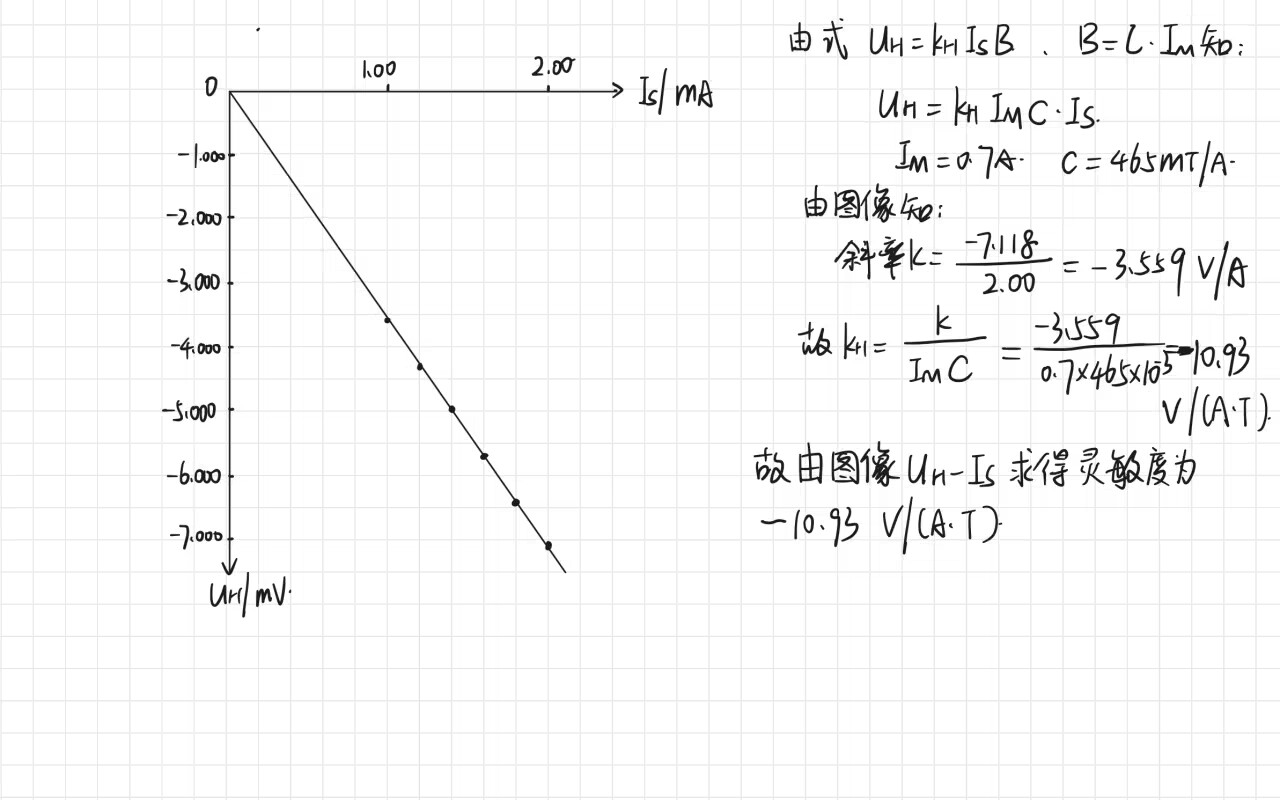 1.00 2.00
0 Is/mA
-1.000
-2.000
-3.000
-4.000
-5.000
-6.000
-7.000
UH/mV.
由式 UH=kHIsB、B=C·IM知:
UH=kH IMC·Is.
IM=0.7A. C=465mT/A.
由图像知:
斜率k= -7.118/2.00 = -3.559 V/A
故kH= k/IMC = -3.559/0.7×465×10⁻³ = -10.93
V/(A·T).
故由图像UH-Is求得灵敏度为
-10.93 V/(A·T).